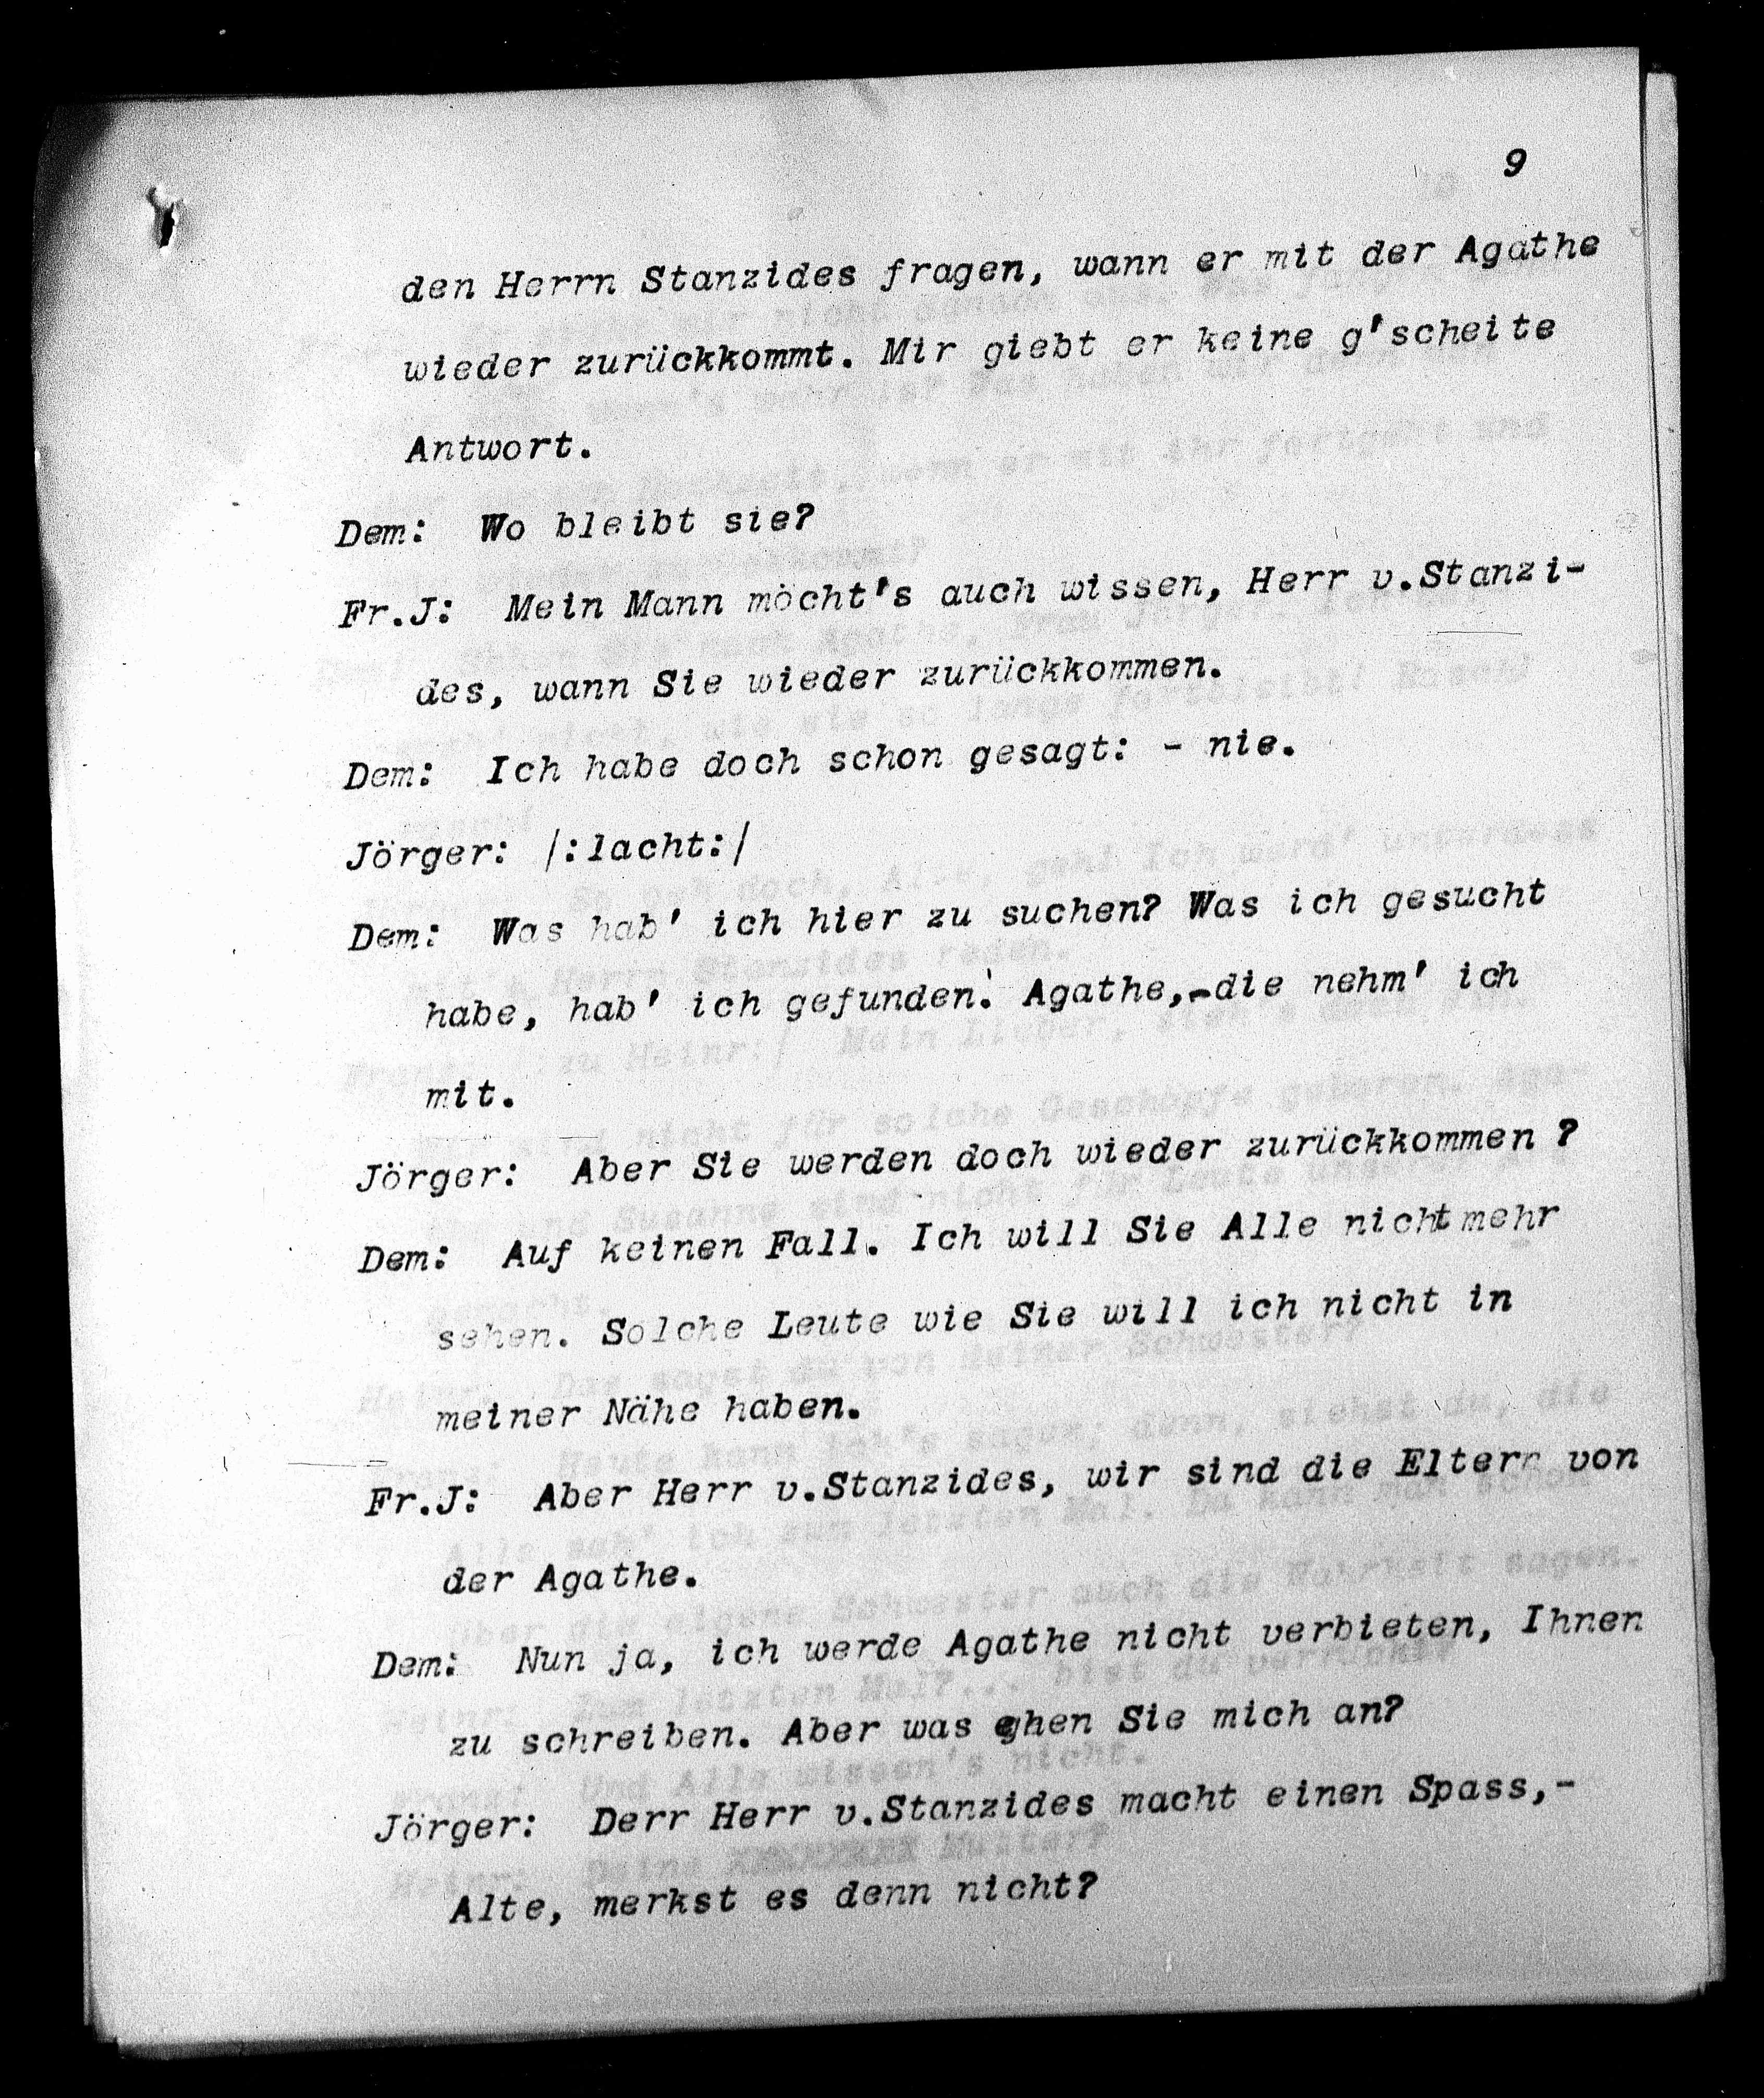 9
den Herrn Stanzides fragen, wann er mit der Agathe
wieder zurückkommt. Mir giebt er keine g'scheite
Antwort.
Dem: Wo bleibt sie?
Fr.J: Mein Mann möcht's auch wissen, Herr v.Stanzi-
des, wann Sie wieder zurückkommen.
Dem: Ich habe doch schon gesagt: - nie.
Jörger: /:lacht:/
Dem: Was hab' ich hier zu suchen? Was ich gesucht
habe, hab' ich gefunden! Agathe,-die nehm' ich
mit.
Jörger: Aber Sie werden doch wieder zurückkommen ?
Dem: Auf keinen Fall. Ich will Sie Alle nicht mehr
sehen. Solche Leute wie Sie will ich nicht in
meiner Nähe haben.
Fr.J: Aber Herr v.Stanzides, wir sind die Eltern von
der Agathe.
Dem: Nun ja, ich werde Agathe nicht verbieten, Ihnen
zu schreiben. Aber was eghen Sie mich an?
Jörger: Derr Herr v.Stanzides macht einen Spass,-
Alte, merkst es denn nicht?